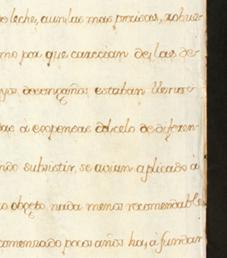 de leche, aun las mas precisas, robus-
mo por que carecian de las de-
yos desengaños estaban llenos
das a expensas del celo de diferen-
ndo subsistir, se avian aplicado á
o objeto nada menos recomendable
comenzado pocos años ha, a fundar